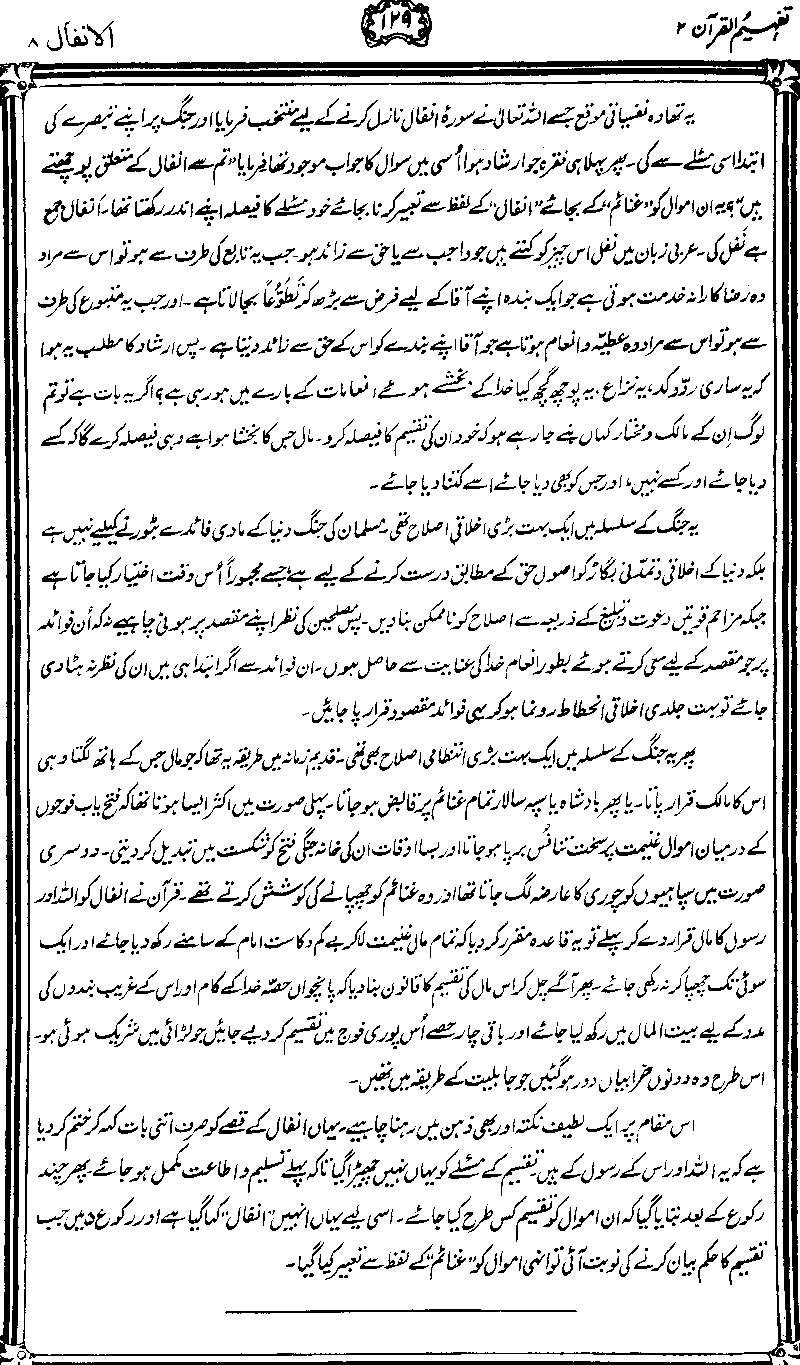 تفہیم القرآن ۲
۱۲۹
الانفال ۸
یہ تھا وہ نفسیاتی موقع جسے اللہ تعالیٰ نے سورۂ انفال نازل کرنے کے لیے منتخب فرمایا اور جنگ پر اپنے تبصرے کی
ابتدا اسی مسئلے سے کی۔ پھر پہلا ہی فقرہ جو ارشاد ہوا اُسی میں سوال کا جواب موجود تھا۔ فرمایا ”تم سے انفال کے متعلق پوچھتے
ہیں“؟ یہ ان اموال کو ”غنائم“ کے بجائے ”انفال“ کے لفظ سے تعبیر کرنا بجائے خود مسئلے کا فیصلہ اپنے اندر رکھتا تھا۔ انفال جمع
ہے نَفل کی۔ عربی زبان میں نفل اس چیز کو کہتے ہیں جو واجب سے یا حق سے زائد ہو۔ جب یہ تابع کی طرف سے ہو تو اس سے مراد
وہ رضاکارانہ خدمت ہوتی ہے جو ایک بندہ اپنے آقا کے لیے فرض سے بڑھ کر تَطَوُّعاً بجا لاتا ہے۔ اور جب یہ متبوع کی طرف
سے ہو تو اس سے مراد وہ عطیّہ و انعام ہوتا ہے جو آقا اپنے بندے کو اس کے حق سے زائد دیتا ہے۔ پس ارشاد کا مطلب یہ ہوا
کہ یہ ساری ردّ و کد، یہ نزاع، یہ پوچھ گچھ کیا خدا کے بخشے ہوئے انعامات کے بارے میں ہو رہی ہے؟ اگر یہ بات ہے تو تم
لوگ اِن کے مالک و مختار کہاں بنے جا رہے ہو کہ خود ان کی تقسیم کا فیصلہ کرو۔ مال جس کا بخشا ہوا ہے وہی فیصلہ کرے گا کہ کسے
دیا جائے اور کسے نہیں، اور جس کو بھی دیا جائے اسے کتنا دیا جائے۔
یہ جنگ کے سلسلہ میں ایک بہت بڑی اخلاقی اصلاح تھی۔ مسلمان کی جنگ دنیا کے مادی فائدے بٹورنے کیلیے نہیں ہے
بلکہ دنیا کے اخلاقی و تمدنی بگاڑ کو اصولِ حق کے مطابق درست کرنے کے لیے ہے، جسے مجبوراً اُس وقت اختیار کیا جاتا ہے
جبکہ مزاحم قوتیں دعوت و تبلیغ کے ذریعہ سے اصلاح کو ناممکن بنا دیں۔ پس مصلحین کی نظر اپنے مقصد پر ہونی چاہیے نہ کہ اُن فوائد
پر جو مقصد کے لیے سعی کرتے ہوئے بطور انعام خدا کی عنایت سے حاصل ہوں۔ ان فوائد سے اگر ابتدا ہی میں ان کی نظر نہ ہٹا دی
جائے تو بہت جلدی اخلاقی انحطاط رونما ہو کر یہی فوائد مقصود قرار پا جائیں۔
پھر یہ جنگ کے سلسلہ میں ایک بہت بڑی انتظامی اصلاح بھی تھی۔ قدیم زمانہ میں طریقہ یہ تھا کہ جو مال جس کے ہاتھ لگتا وہی
اس کا مالک قرار پاتا۔ یا پھر بادشاہ یا سپہ سالار تمام غنائم پر قابض ہو جاتا۔ پہلی صورت میں اکثر ایسا ہوتا تھا کہ فتح یاب فوجوں
کے درمیان اموالِ غنیمت پر سخت تنافُس برپا ہو جاتا اور بسا اوقات ان کی خانہ جنگی فتح کو شکست میں تبدیل کر دیتی۔ دوسری
صورت میں سپاہیوں کو چوری کا عارضہ لگ جاتا تھا اور وہ غنائم کو چھپانے کی کوشش کرتے تھے۔ قرآن نے انفال کو اللہ اور
رسول کا مال قرار دے کر پہلے تو یہ قاعدہ مقرر کر دیا کہ تمام مال غنیمت لا کر بے کم و کاست امام کے سامنے رکھ دیا جائے اور ایک
سوئی تک چھپا کر نہ رکھی جائے۔ پھر آگے چل کر اس مال کی تقسیم کا قانون بنا دیا کہ پانچواں حصّہ خدا کے کام اور اس کے غریب بندوں کی
مدد کے لیے بیت المال میں رکھ لیا جائے اور باقی چار حصے اُس پوری فوج میں تقسیم کر دیے جائیں جو لڑائی میں شریک ہوئی ہو۔
اس طرح وہ دونوں خرابیاں دور ہو گئیں جو جاہلیت کے طریقہ میں تھیں۔
اس مقام پر ایک لطیف نکتہ اور بھی ذہن میں رہنا چاہیے۔ یہاں انفال کے قصے کو صرف اتنی بات کہہ کر ختم کر دیا
ہے کہ یہ اللہ اور اس کے رسول کے ہیں۔ تقسیم کے مسئلے کو یہاں نہیں چھیڑا گیا تاکہ پہلے تسلیم و اطاعت مکمل ہو جائے۔ پھر چند
رکوع کے بعد بتایا گیا کہ ان اموال کو تقسیم کس طرح کیا جائے۔ اسی لیے یہاں انہیں ”انفال“ کہا گیا ہے اور رکوع ۵ میں جب
تقسیم کا حکم بیان کرنے کی نوبت آئی تو انہی اموال کو ”غنائم“ کے لفظ سے تعبیر کیا گیا۔